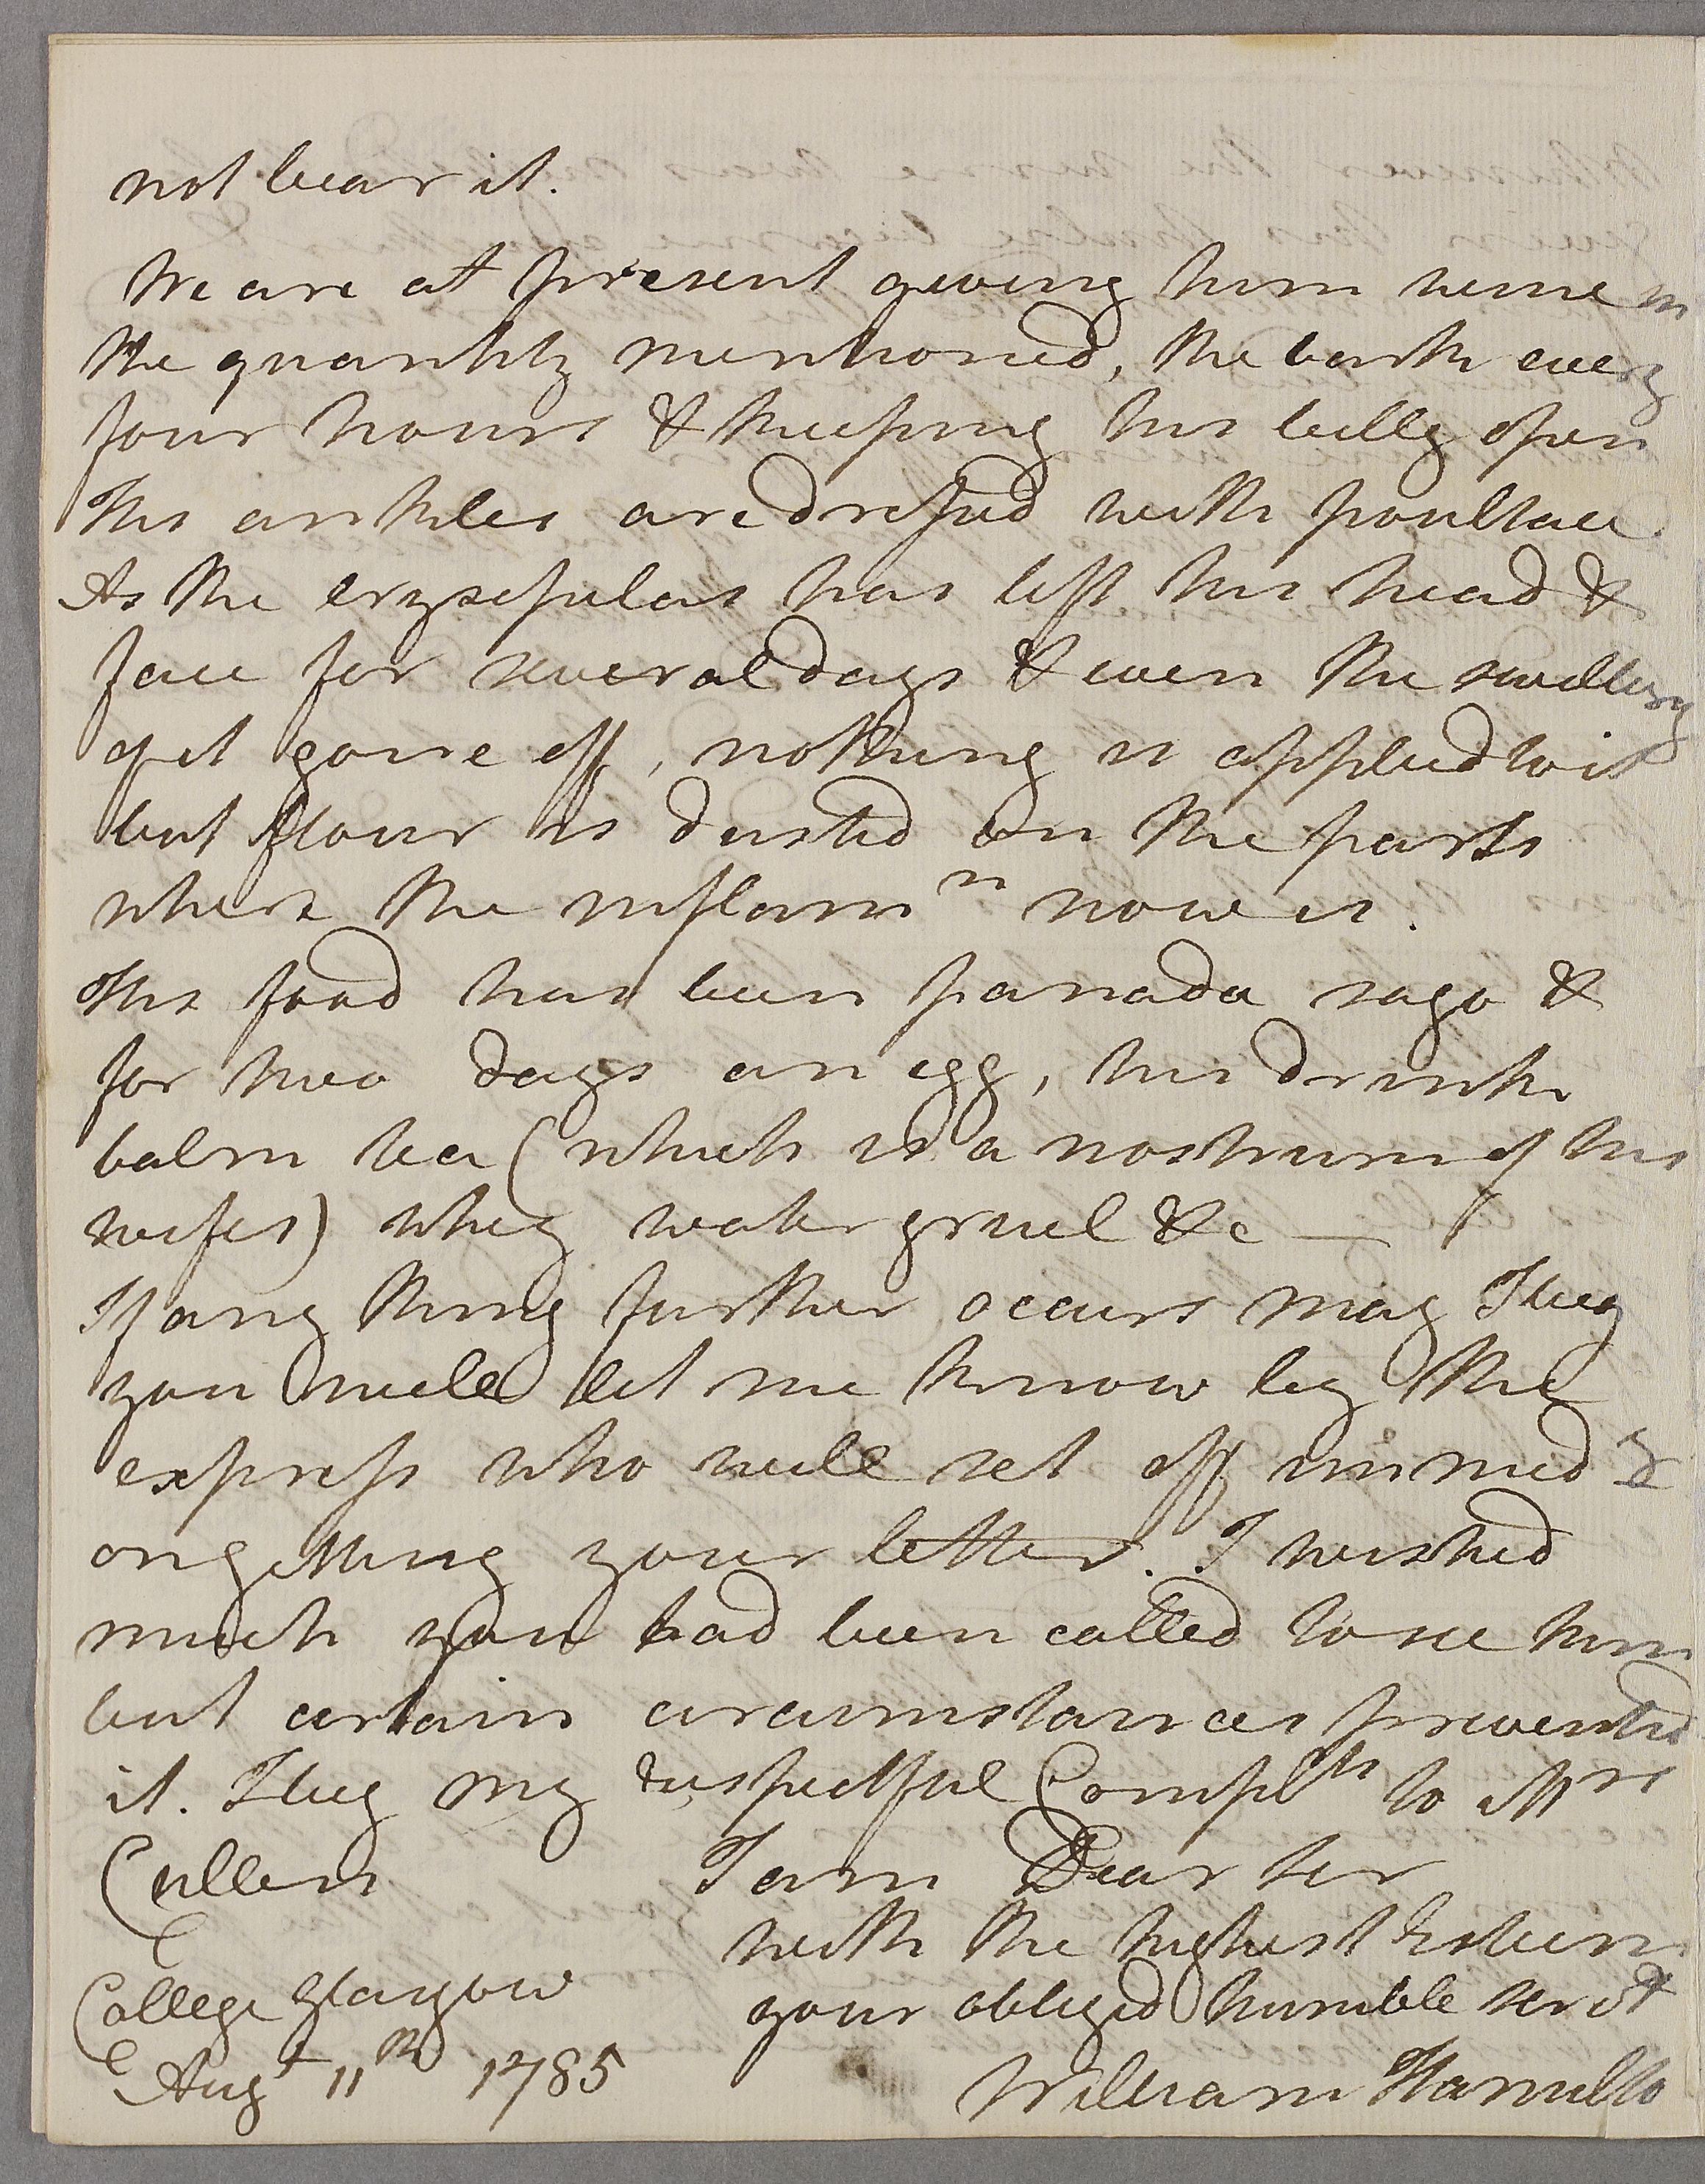 not bear it.
We are at present giving him wine in
the quantity mentioned, the bark every
four hours & keeping his belly open
His ankles are dressed with poultace
As the erysepelas has left his head &
face for several days & even the swelling
of it gone off, nothing is applied to it
but flour is dusted on the parts
where the inflamn now is.
His food has been panada sago &
for two days an egg, his drink
balm tea (which is a nostrum of his
wifes) whey water gruel &c —
If any thing further occurs may I beg
you will let me know by the
express who will set off immed
on getting your letter. I wished
much you had been called to see him
but certain circumstances prevented
it. I beg my respectful Complts to Mrs
Cullen I am Dear Sir
with the highest Esteem
College Glasgow your obliged humble servt
Augt 11th 1785 William Hamilto